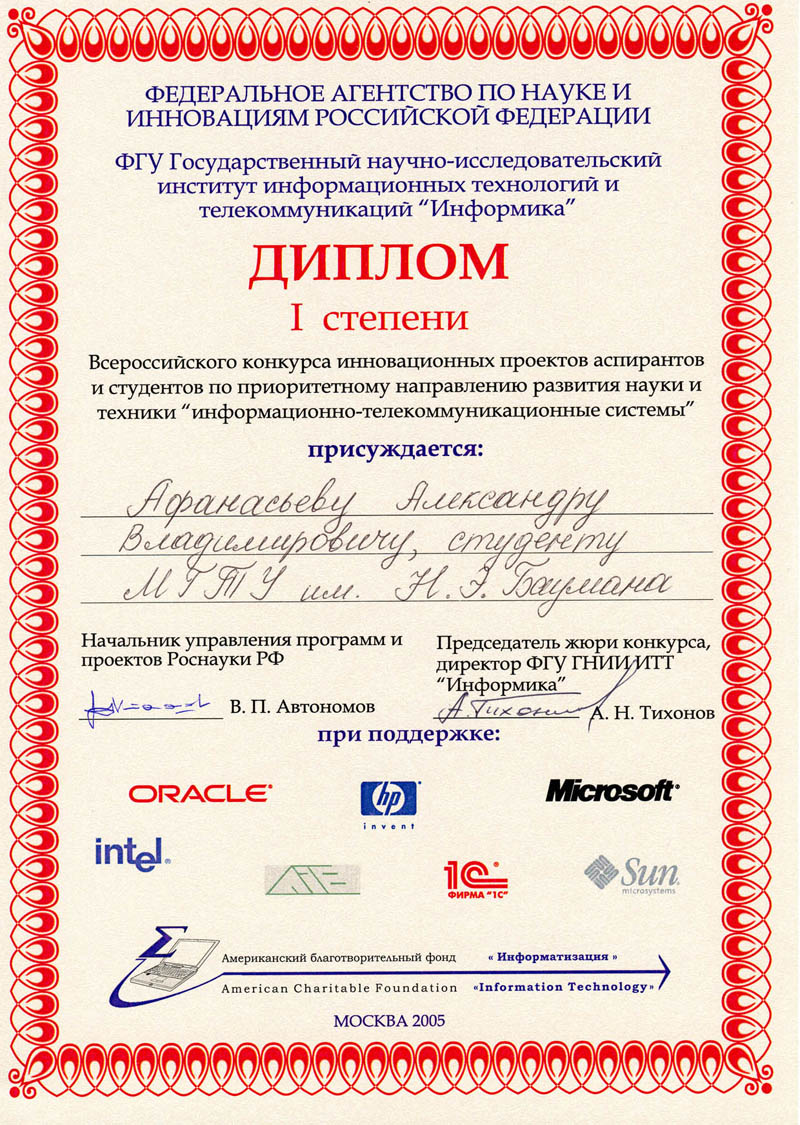 ФЕДЕРАЛЬНОЕ АГЕНТСТВО ПО НАУКЕ И
ИННОВАЦИЯМ РОССИЙСКОЙ ФЕДЕРАЦИИ
ФГУ Государственный научно-исследовательский
институт информационных технологий и
телекоммуникаций “Информика”
ДИПЛОМ
I степени
Всероссийского конкурса инновационных проектов аспирантов
и студентов по приоритетному направлению развития науки и
техники “информационно-телекоммуникационные системы”
присуждается:
Афанасьеву Александру
Владимировичу, студенту
МГТУ им. Н.Э. Баумана
Начальник управления программ и
проектов Роснауки РФ
В. П. Автономов
Председатель жюри конкурса,
директор ФГУ ГНИИ ИТТ
“Информика”
А. Тихонов
А. Н. Тихонов
при поддержке:
ORACLE®
hp
invent
Microsoft®
intel®
1С®
ФИРМА "1С"
Sun
microsystems
Американский благотворительный фонд « Информатизация »
American Charitable Foundation «Information Technology»
МОСКВА 2005